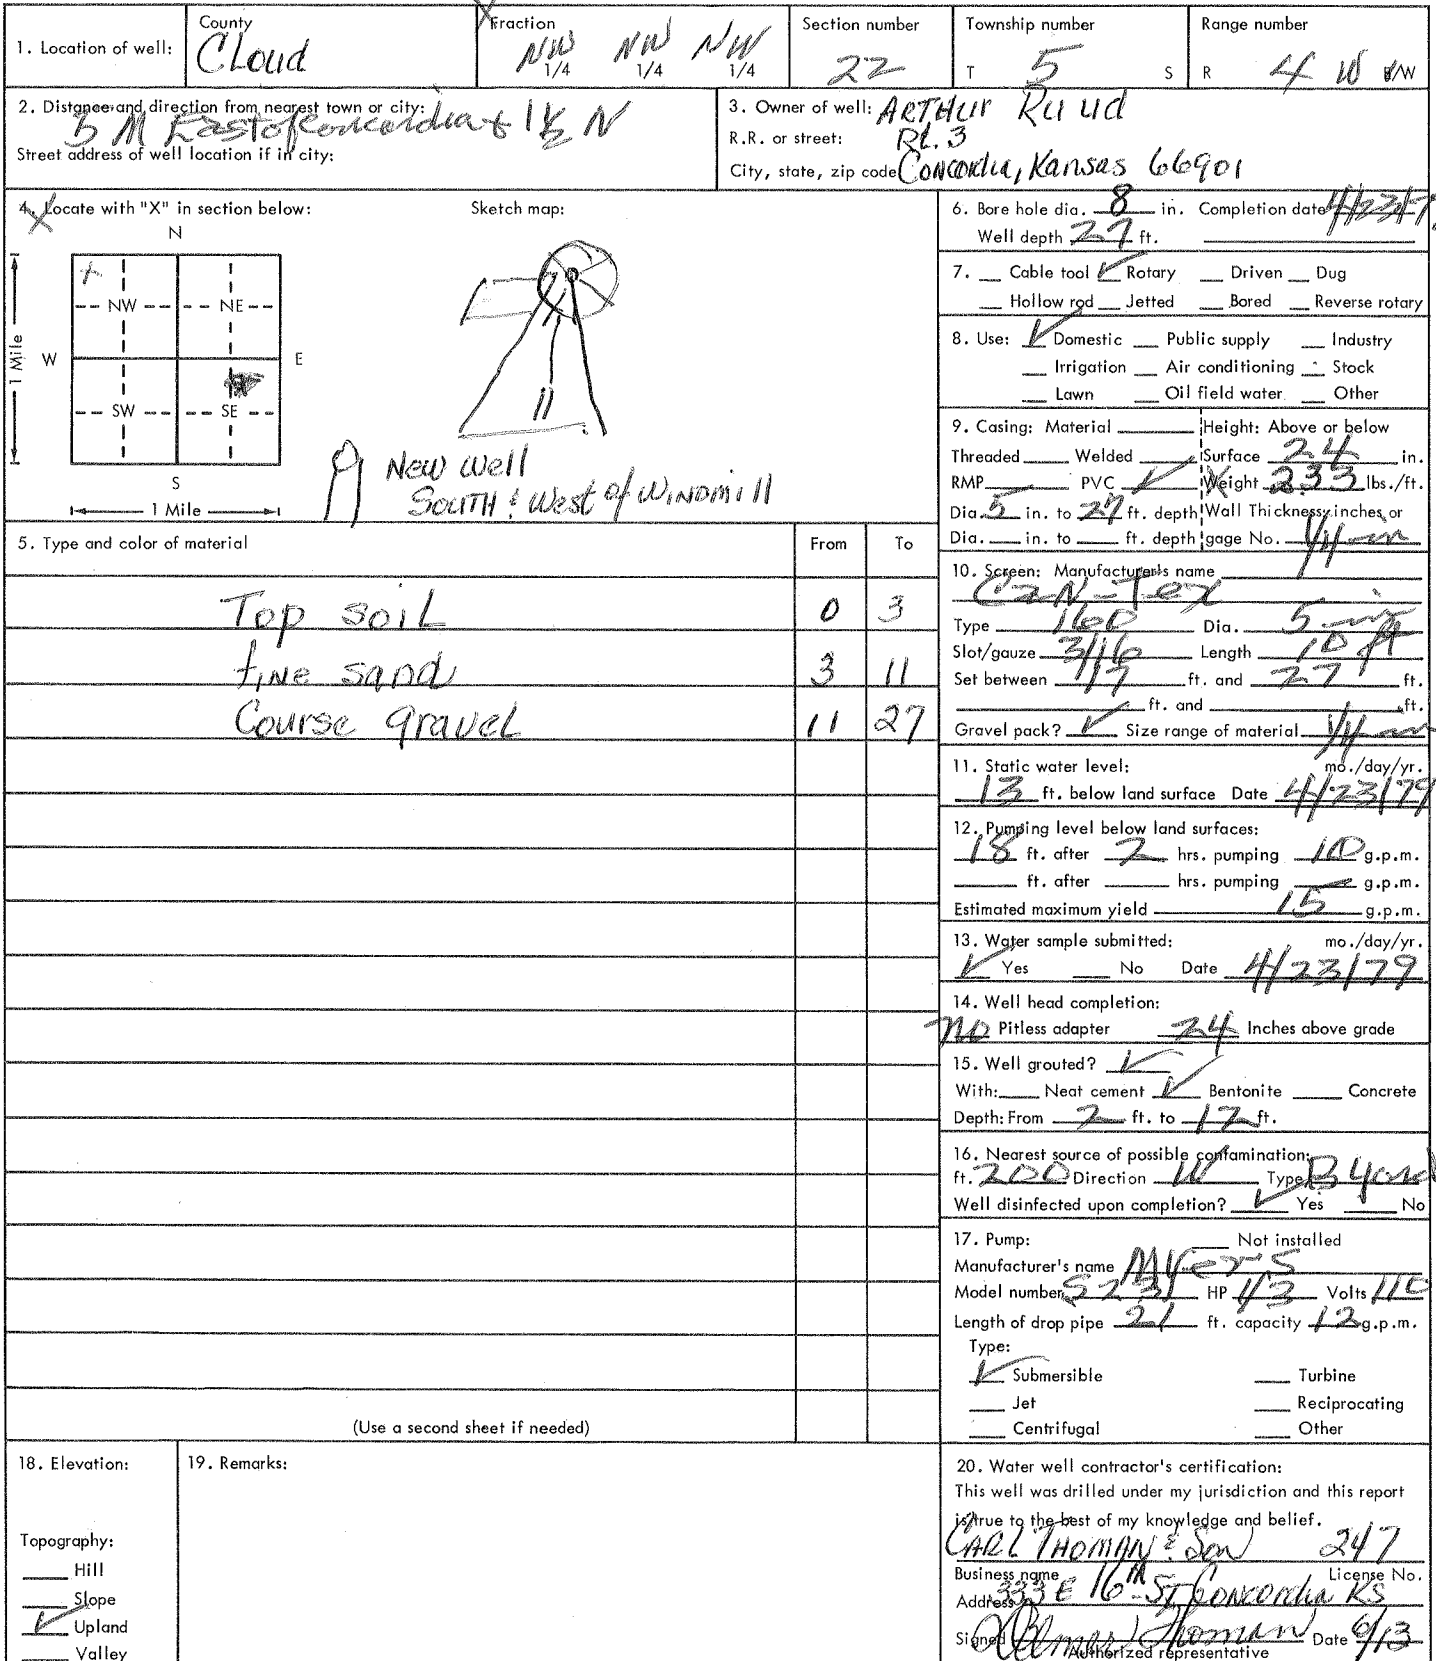 1. Location of well: County Cloud Fraction NW 1/4 NW 1/4 NW 1/4 Section number 22 Township number T 5 S Range number R 4 W E/W
2. Distance and direction from nearest town or city:
5 M East of Concordia & 1 1/2 N
Street address of well location if in city:
3. Owner of well: ARTHUR Ruud
R.R. or street: Rt. 3
City, state, zip code Concordia, Kansas 66901
4. Locate with "X" in section below: Sketch map:
N
NW NE
W E
1 Mile
SW SE
S
1 Mile
New Well
South & West of Windmill
5. Type and color of material From To
Top soil 0 3
fine sand 3 11
Course gravel 11 27
(Use a second sheet if needed)
6. Bore hole dia. 8 in. Completion date 4/23/7
Well depth 27 ft.
7. Cable tool ✓ Rotary Driven Dug
Hollow rod Jetted Bored Reverse rotary
8. Use: ✓ Domestic Public supply Industry
Irrigation Air conditioning Stock
Lawn Oil field water Other
9. Casing: Material Height: Above or below
Threaded Welded Surface 24 in.
RMP PVC ✓ Weight 2.33 lbs./ft.
Dia. 5 in. to 27 ft. depth Wall Thickness: inches or
Dia. in. to ft. depth gage No. 1/4 in
10. Screen: Manufacturer's name
Can-Tex
Type 160 Dia. 5 in
Slot/gauze 3/16 Length 10 ft
Set between 17 ft. and 27 ft.
ft. and ft.
Gravel pack? ✓ Size range of material 1/4 in
11. Static water level: mo./day/yr.
13 ft. below land surface Date 4/23/79
12. Pumping level below land surfaces:
18 ft. after 2 hrs. pumping 10 g.p.m.
ft. after hrs. pumping g.p.m.
Estimated maximum yield 15 g.p.m.
13. Water sample submitted: mo./day/yr.
✓ Yes No Date 4/23/79
14. Well head completion:
no Pitless adapter 24 Inches above grade
15. Well grouted? ✓
With: Neat cement ✓ Bentonite Concrete
Depth: From 2 ft. to 12 ft.
16. Nearest source of possible contamination:
ft. 200 Direction W Type B yard
Well disinfected upon completion? ✓ Yes No
17. Pump: Not installed
Manufacturer's name Myers
Model number S231 HP 1/3 Volts 110
Length of drop pipe 21 ft. capacity 12 g.p.m.
Type:
✓ Submersible Turbine
Jet Reciprocating
Centrifugal Other
18. Elevation:
Topography:
Hill
Slope
✓ Upland
Valley
19. Remarks:
20. Water well contractor's certification:
This well was drilled under my jurisdiction and this report
is true to the best of my knowledge and belief.
Carl Thoman & Son 247
Business name License No.
Address 333 E 16th St Concordia KS
Signed Thoman Date 6/13
Authorized representative